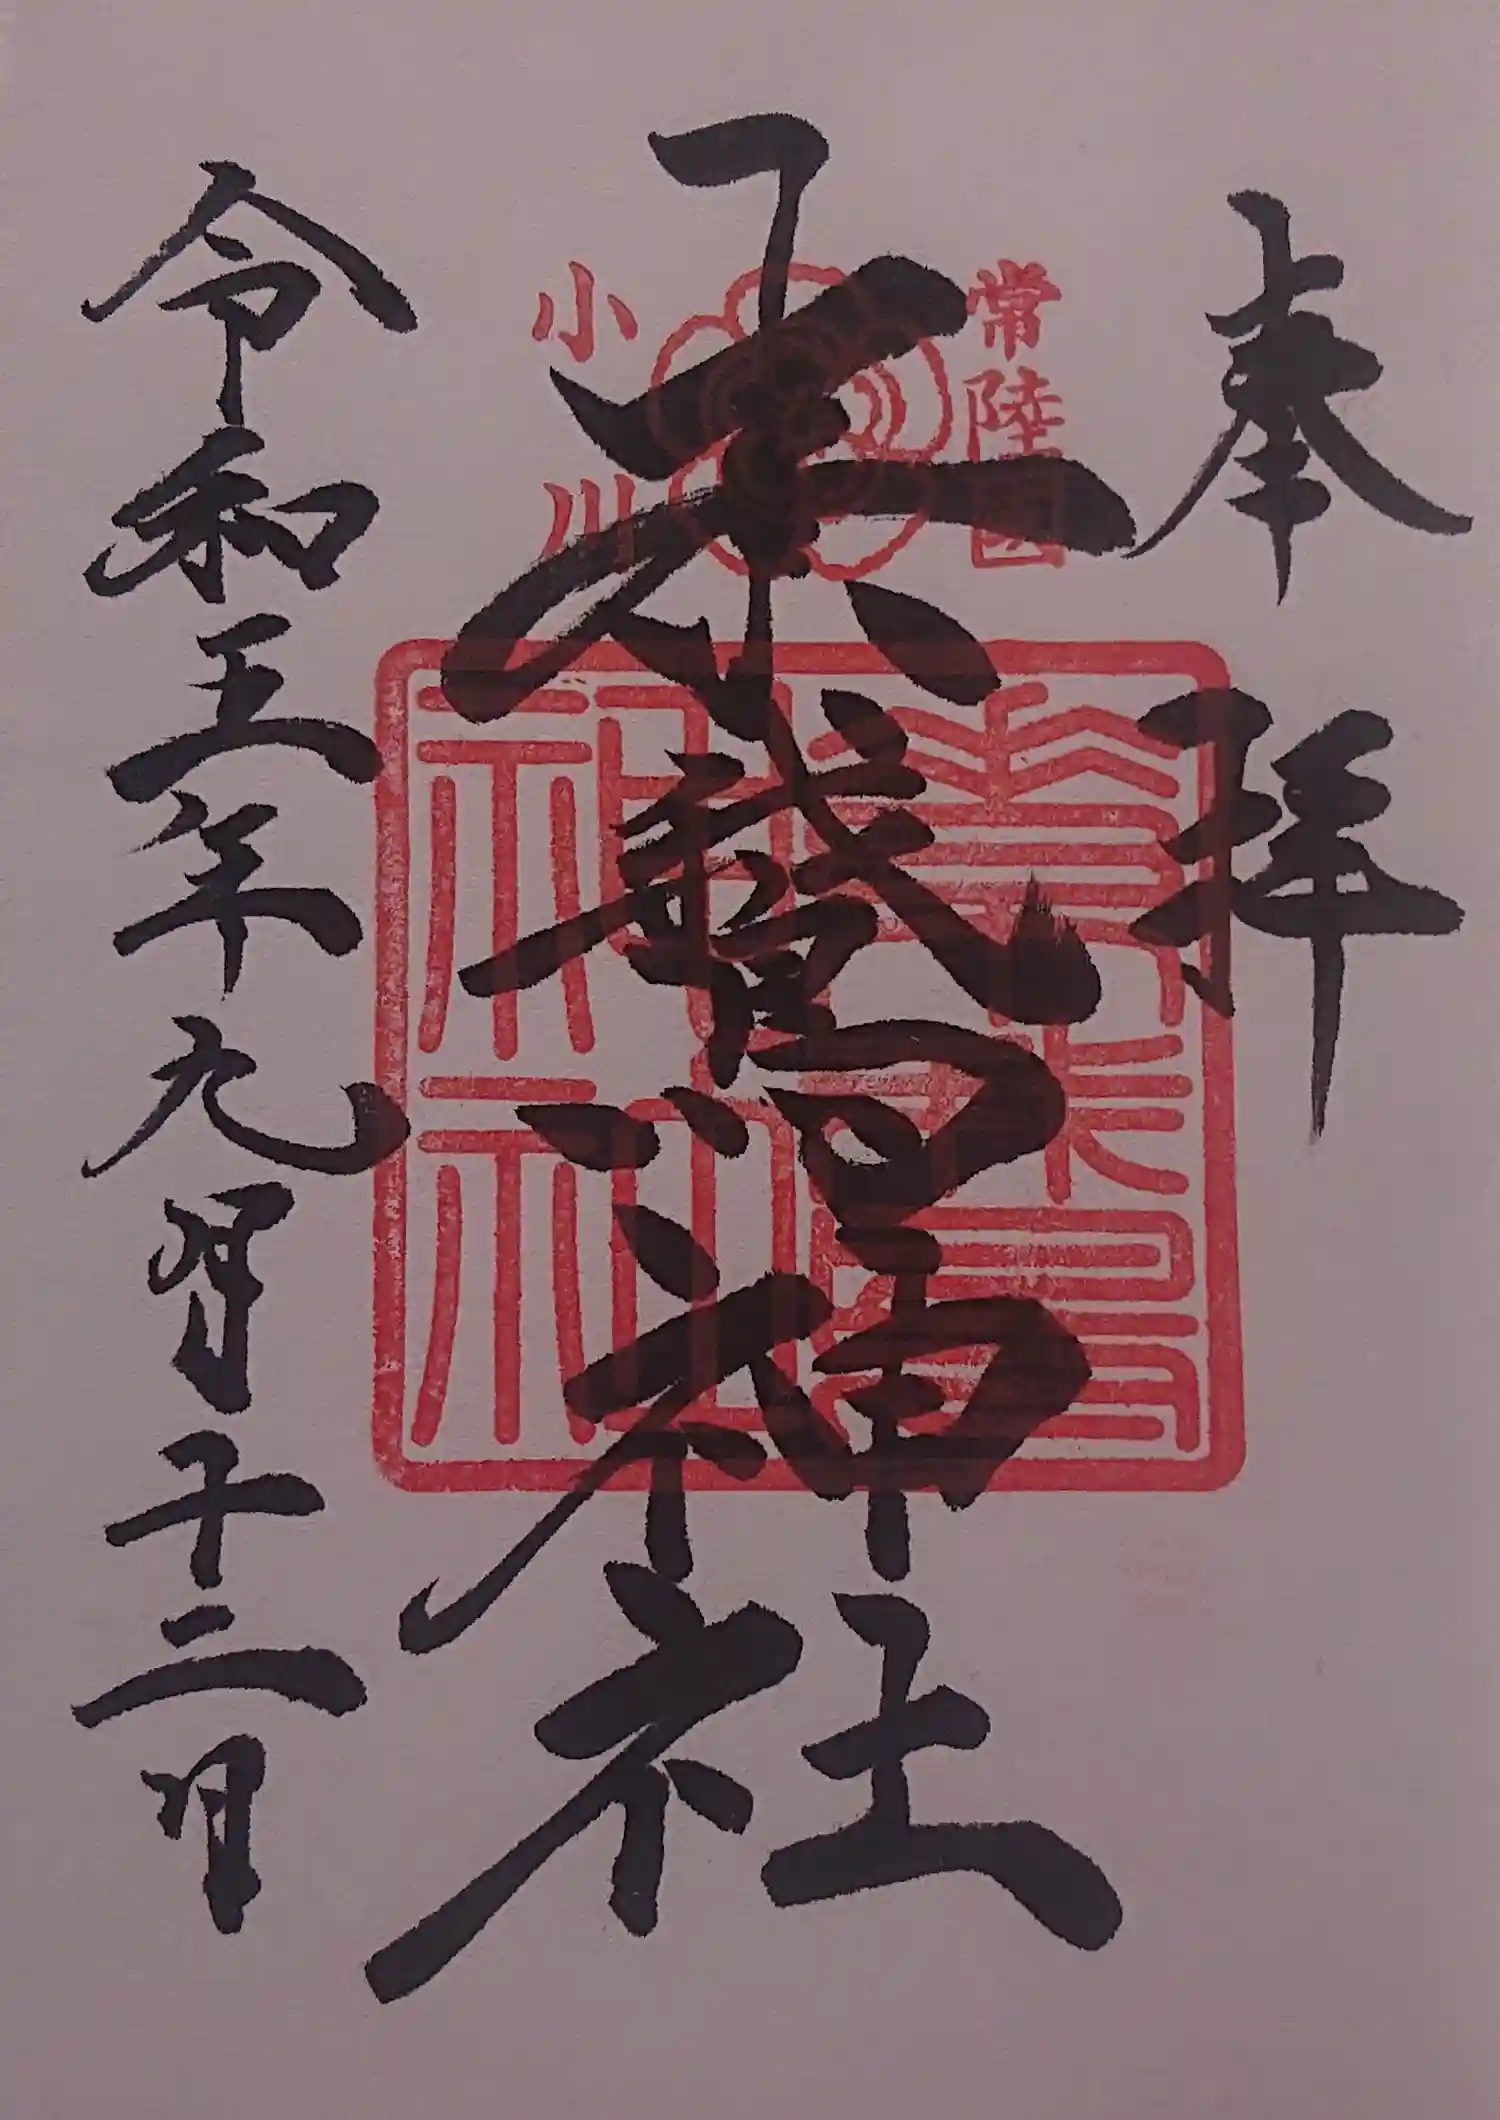 奉拝
常陸國
素鵞神社
小川
素鵞
神社
令和五年九月十二日